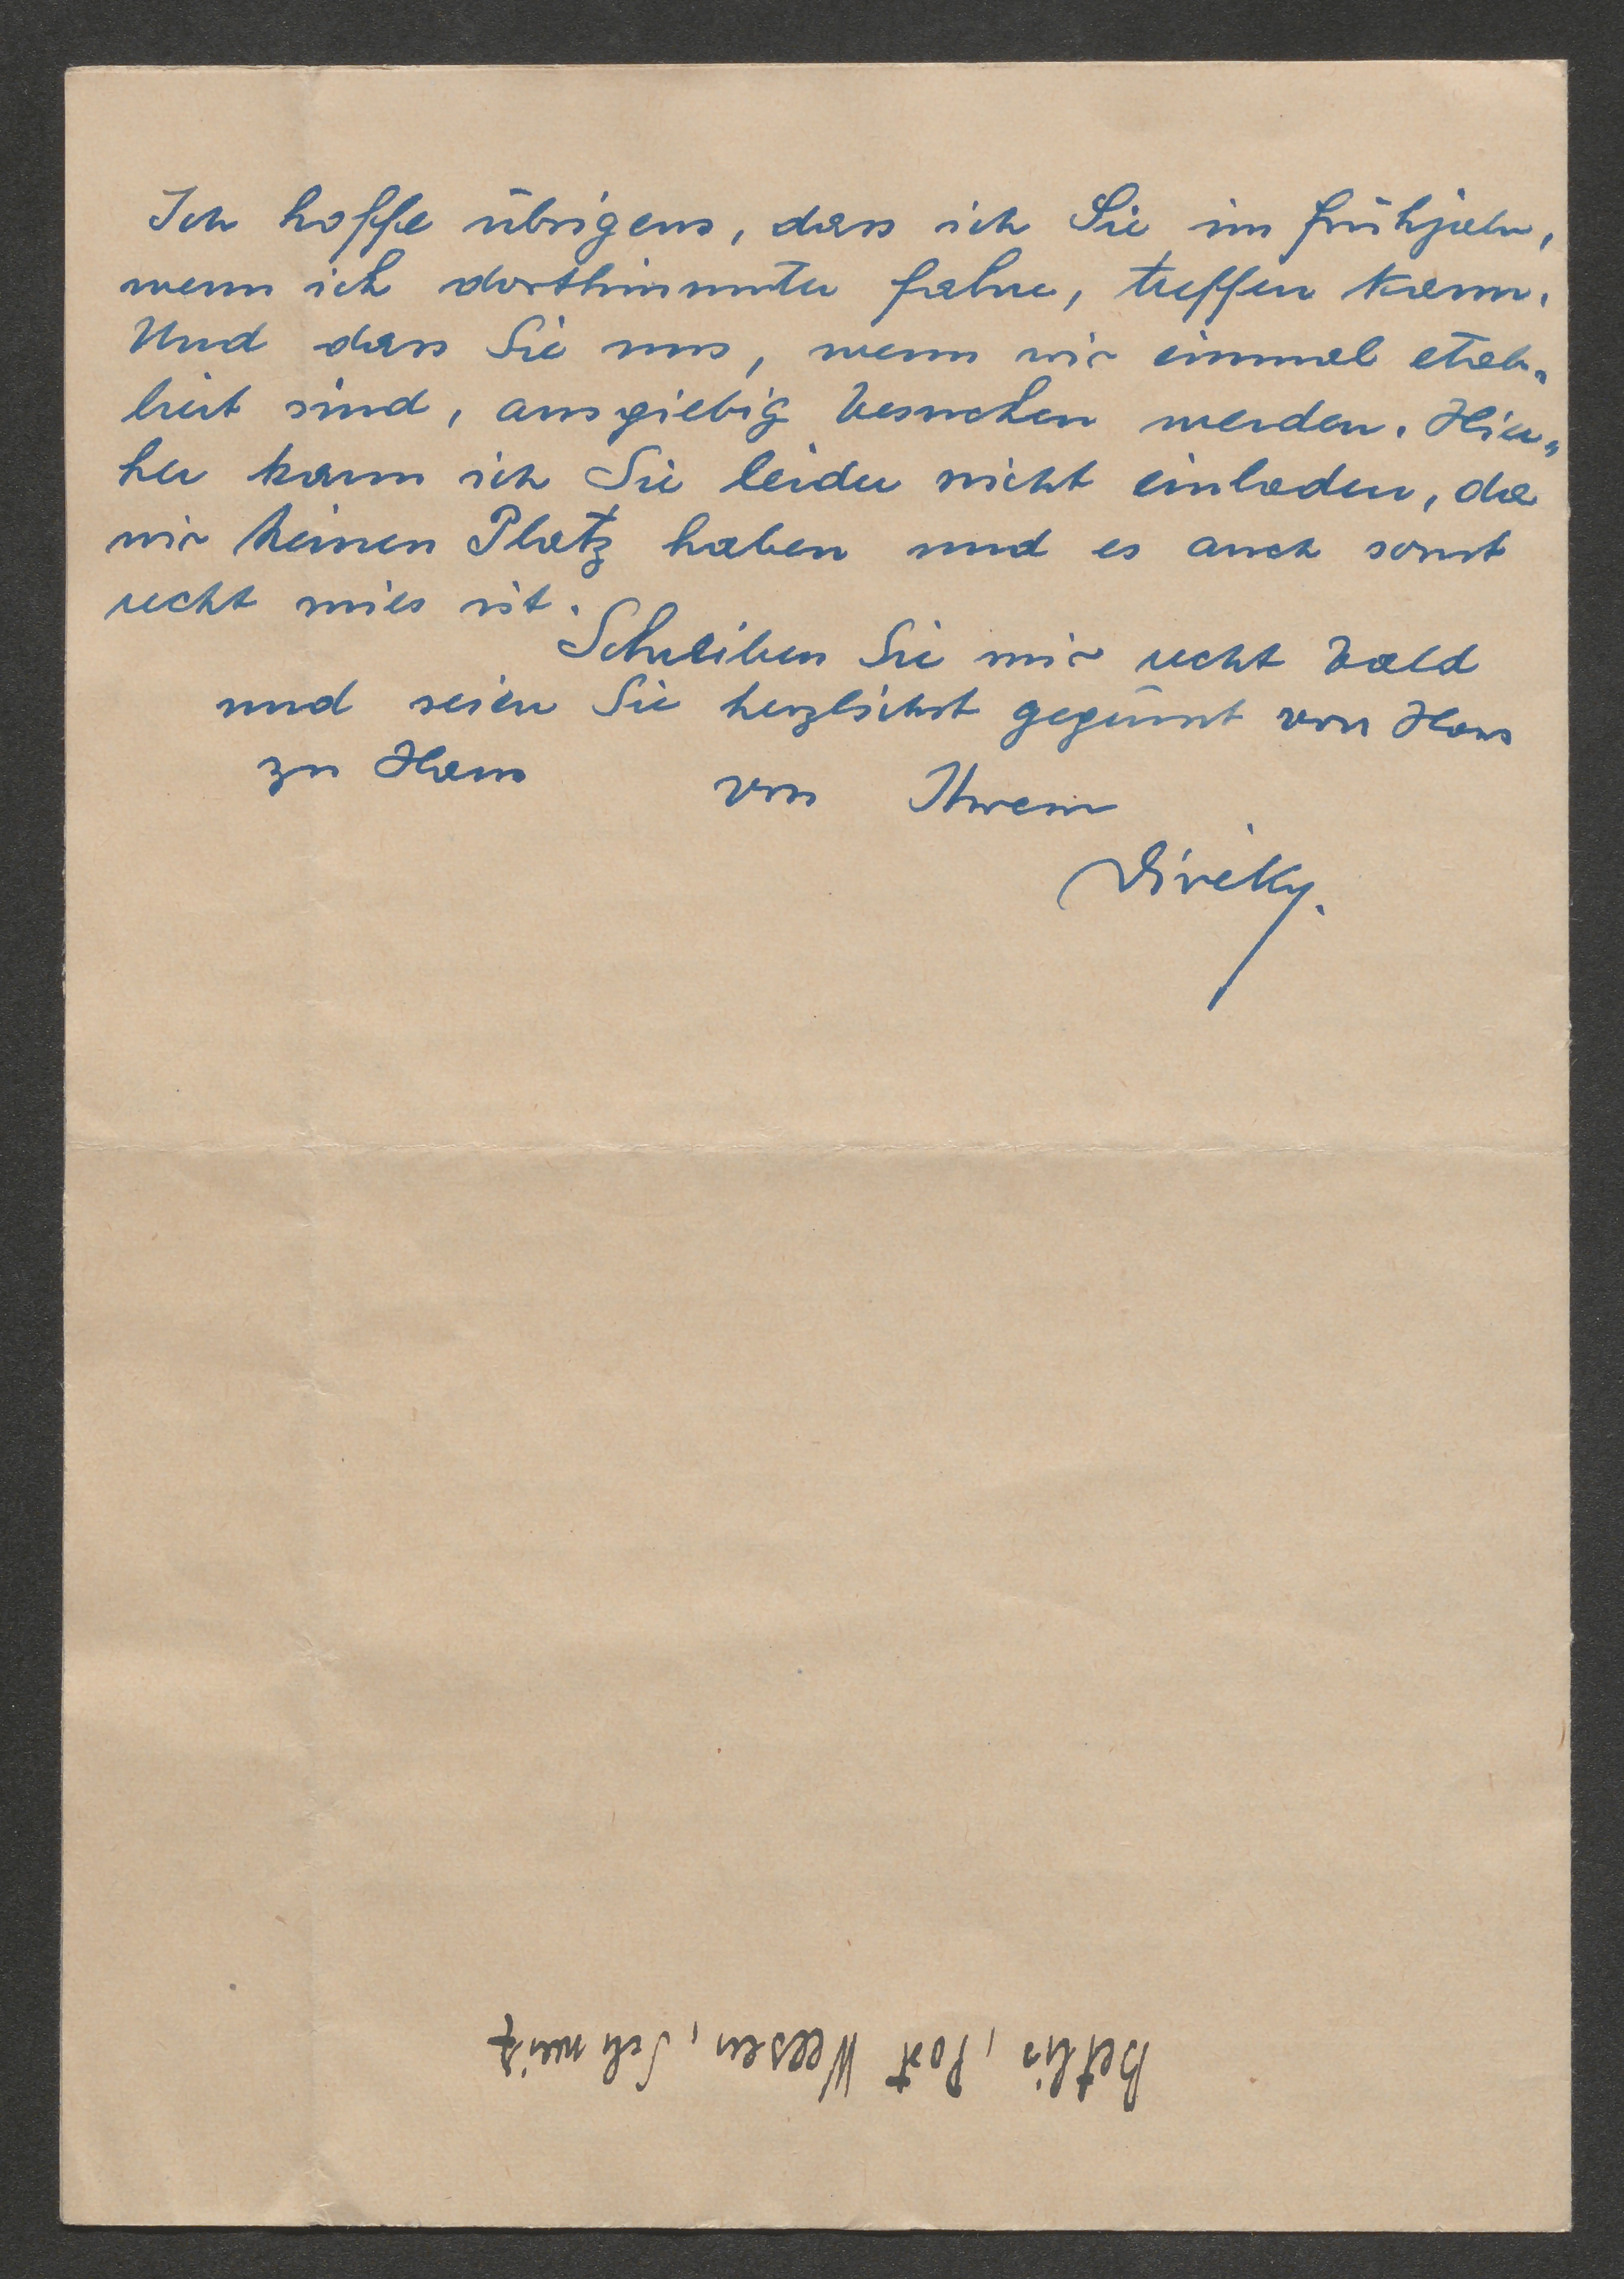 Ich hoffe übrigens, dass ich Sie im Frühjahr,
wenn ich dorthinunter fahre, treffen kann.
Und dass Sie uns, wenn wir einmal etab-
liert sind, ausgiebig besuchen werden. Hier-
her kann ich Sie leider nicht einladen, da
wir keinen Platz haben und es auch sonst
recht mies ist.
Schreiben Sie mir recht bald
und seien Sie herzlichst gegrüsst von Haus
zu Haus von Ihrem
Betlis, Post Weesen, Schweiz